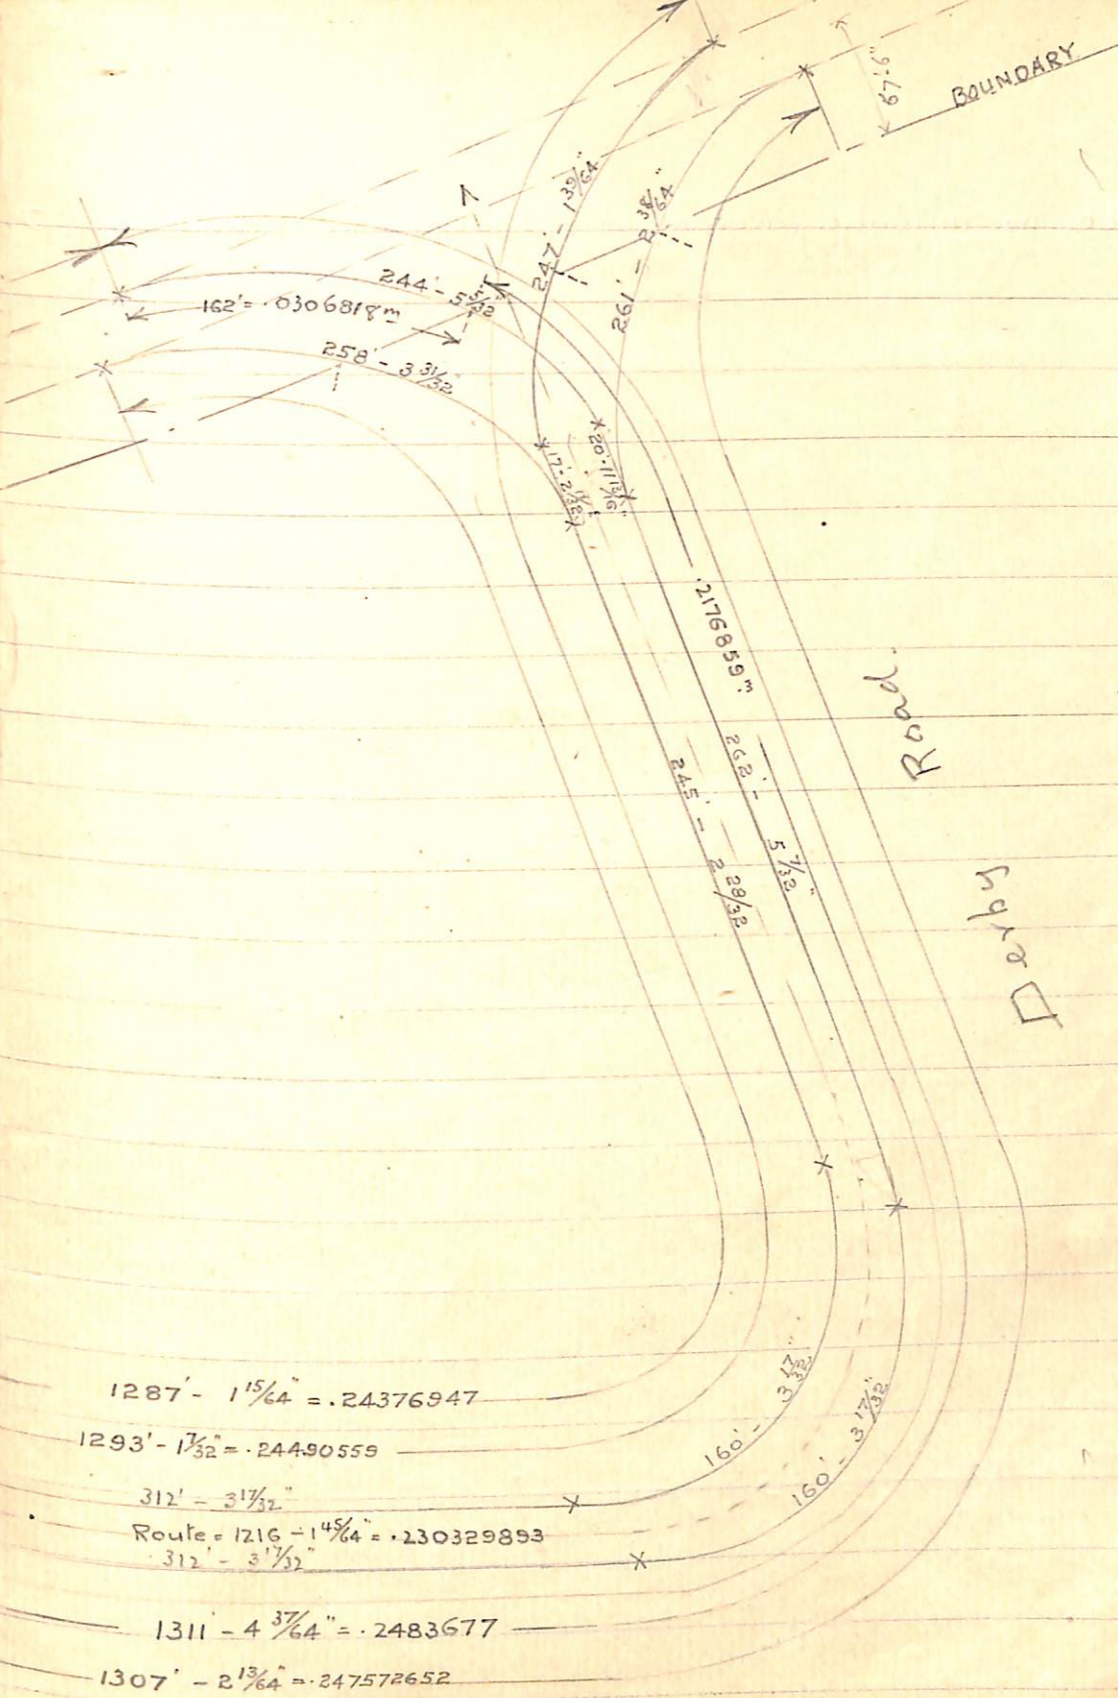 BOUNDARY
67'.6"
247' - 1 39/64"
2 38/64"
261' -
244' - 5 5/32"
162' = .0306818m
258' - 3 31/32"
20'-11 13/16"
17'-2 11/32"
.2176859m
262' - 5 7/32"
245' - 2 28/32
Road.
Derby
3 17/32"
160' -
160' - 3 17/32"
1287' - 1 15/64" = .24376947
1293' - 1 7/32" = .24490559
312' - 3 17/32"
Route = 1216 - 1 45/64" = .230329893
312' - 3 17/32"
1311' - 4 37/64" = .2483677
1307' - 2 13/64" = .247572652